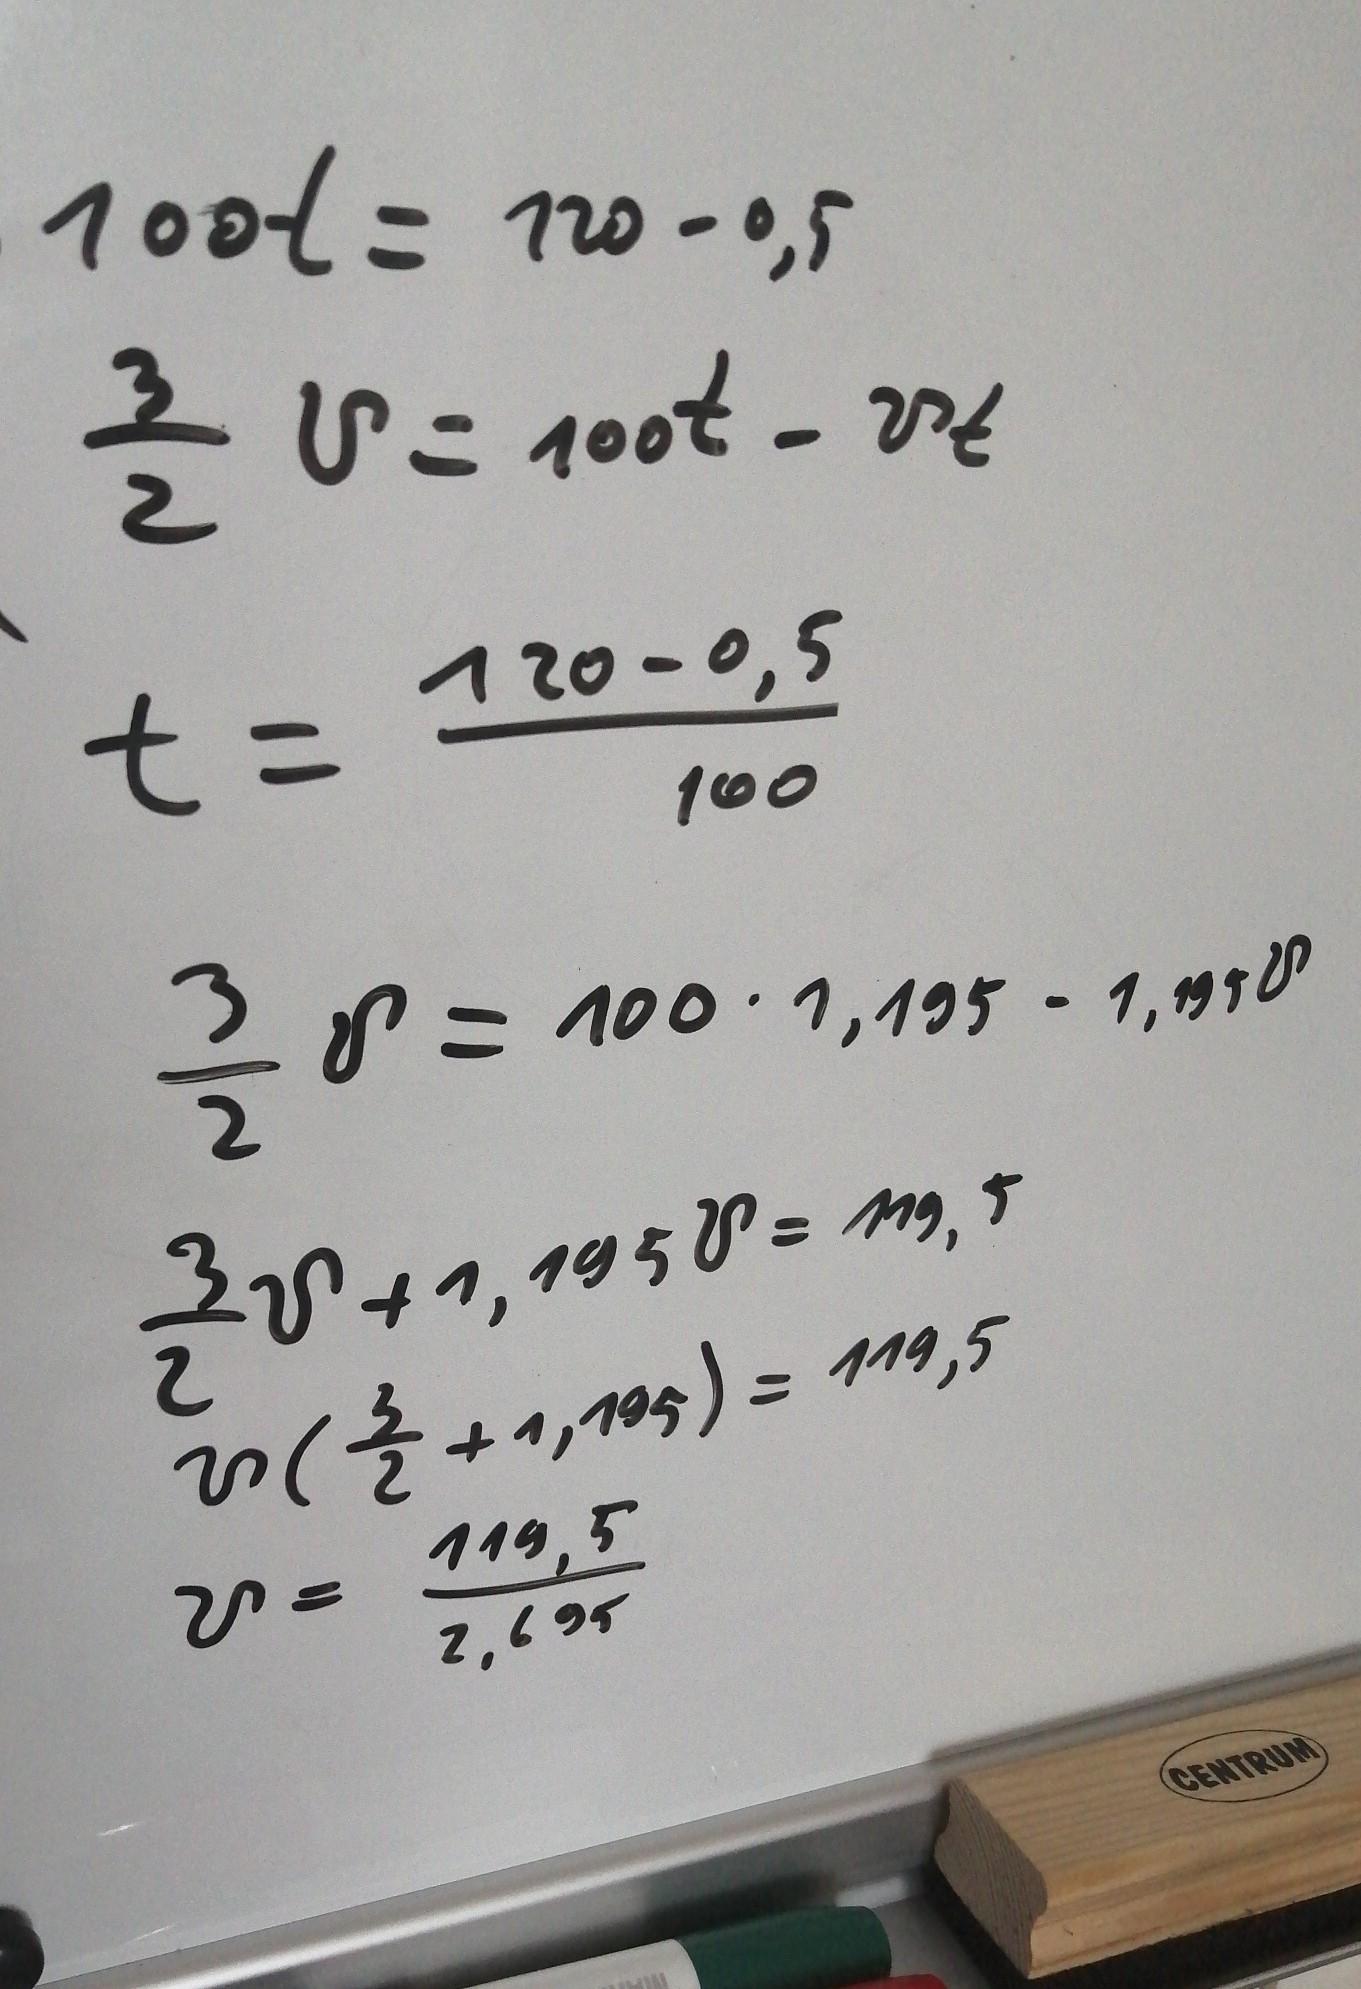 100t = 120 - 0,5
3/2 v = 100t - vt
t = 120 - 0,5 / 100
3/2 v = 100 · 1,195 - 1,195 v
3/2 v + 1,195 v = 119,5
v ( 3/2 + 1,195 ) = 119,5
v = 119,5 / 2,695
CENTRUM